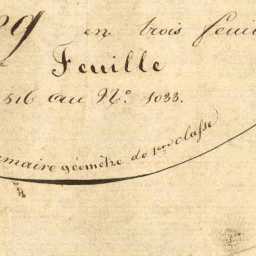 en trois feuil
Feuille
516 au N.º 1033.
maire géomètre de 1ère classe